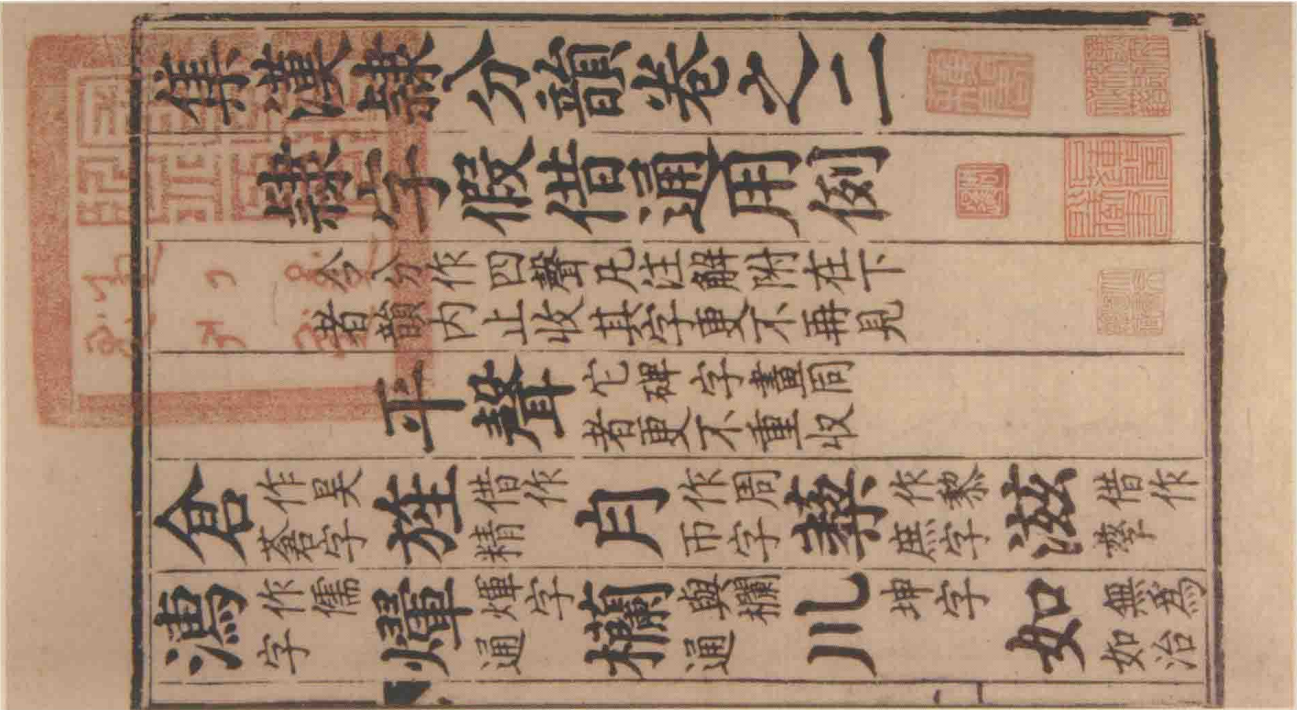 集漢隸分韻卷之二
隸字假借通用例
今分作四聲凡注解附在下
者韻内止收其字更不再見
平聲 它碑字畫同
者更不重收
倉 作昊蒼字 旌 借作精 作周帀字 作黎庶字 滋 借作孳
作儒字 煇字通 與欄通 川 坤字 如 無為如治